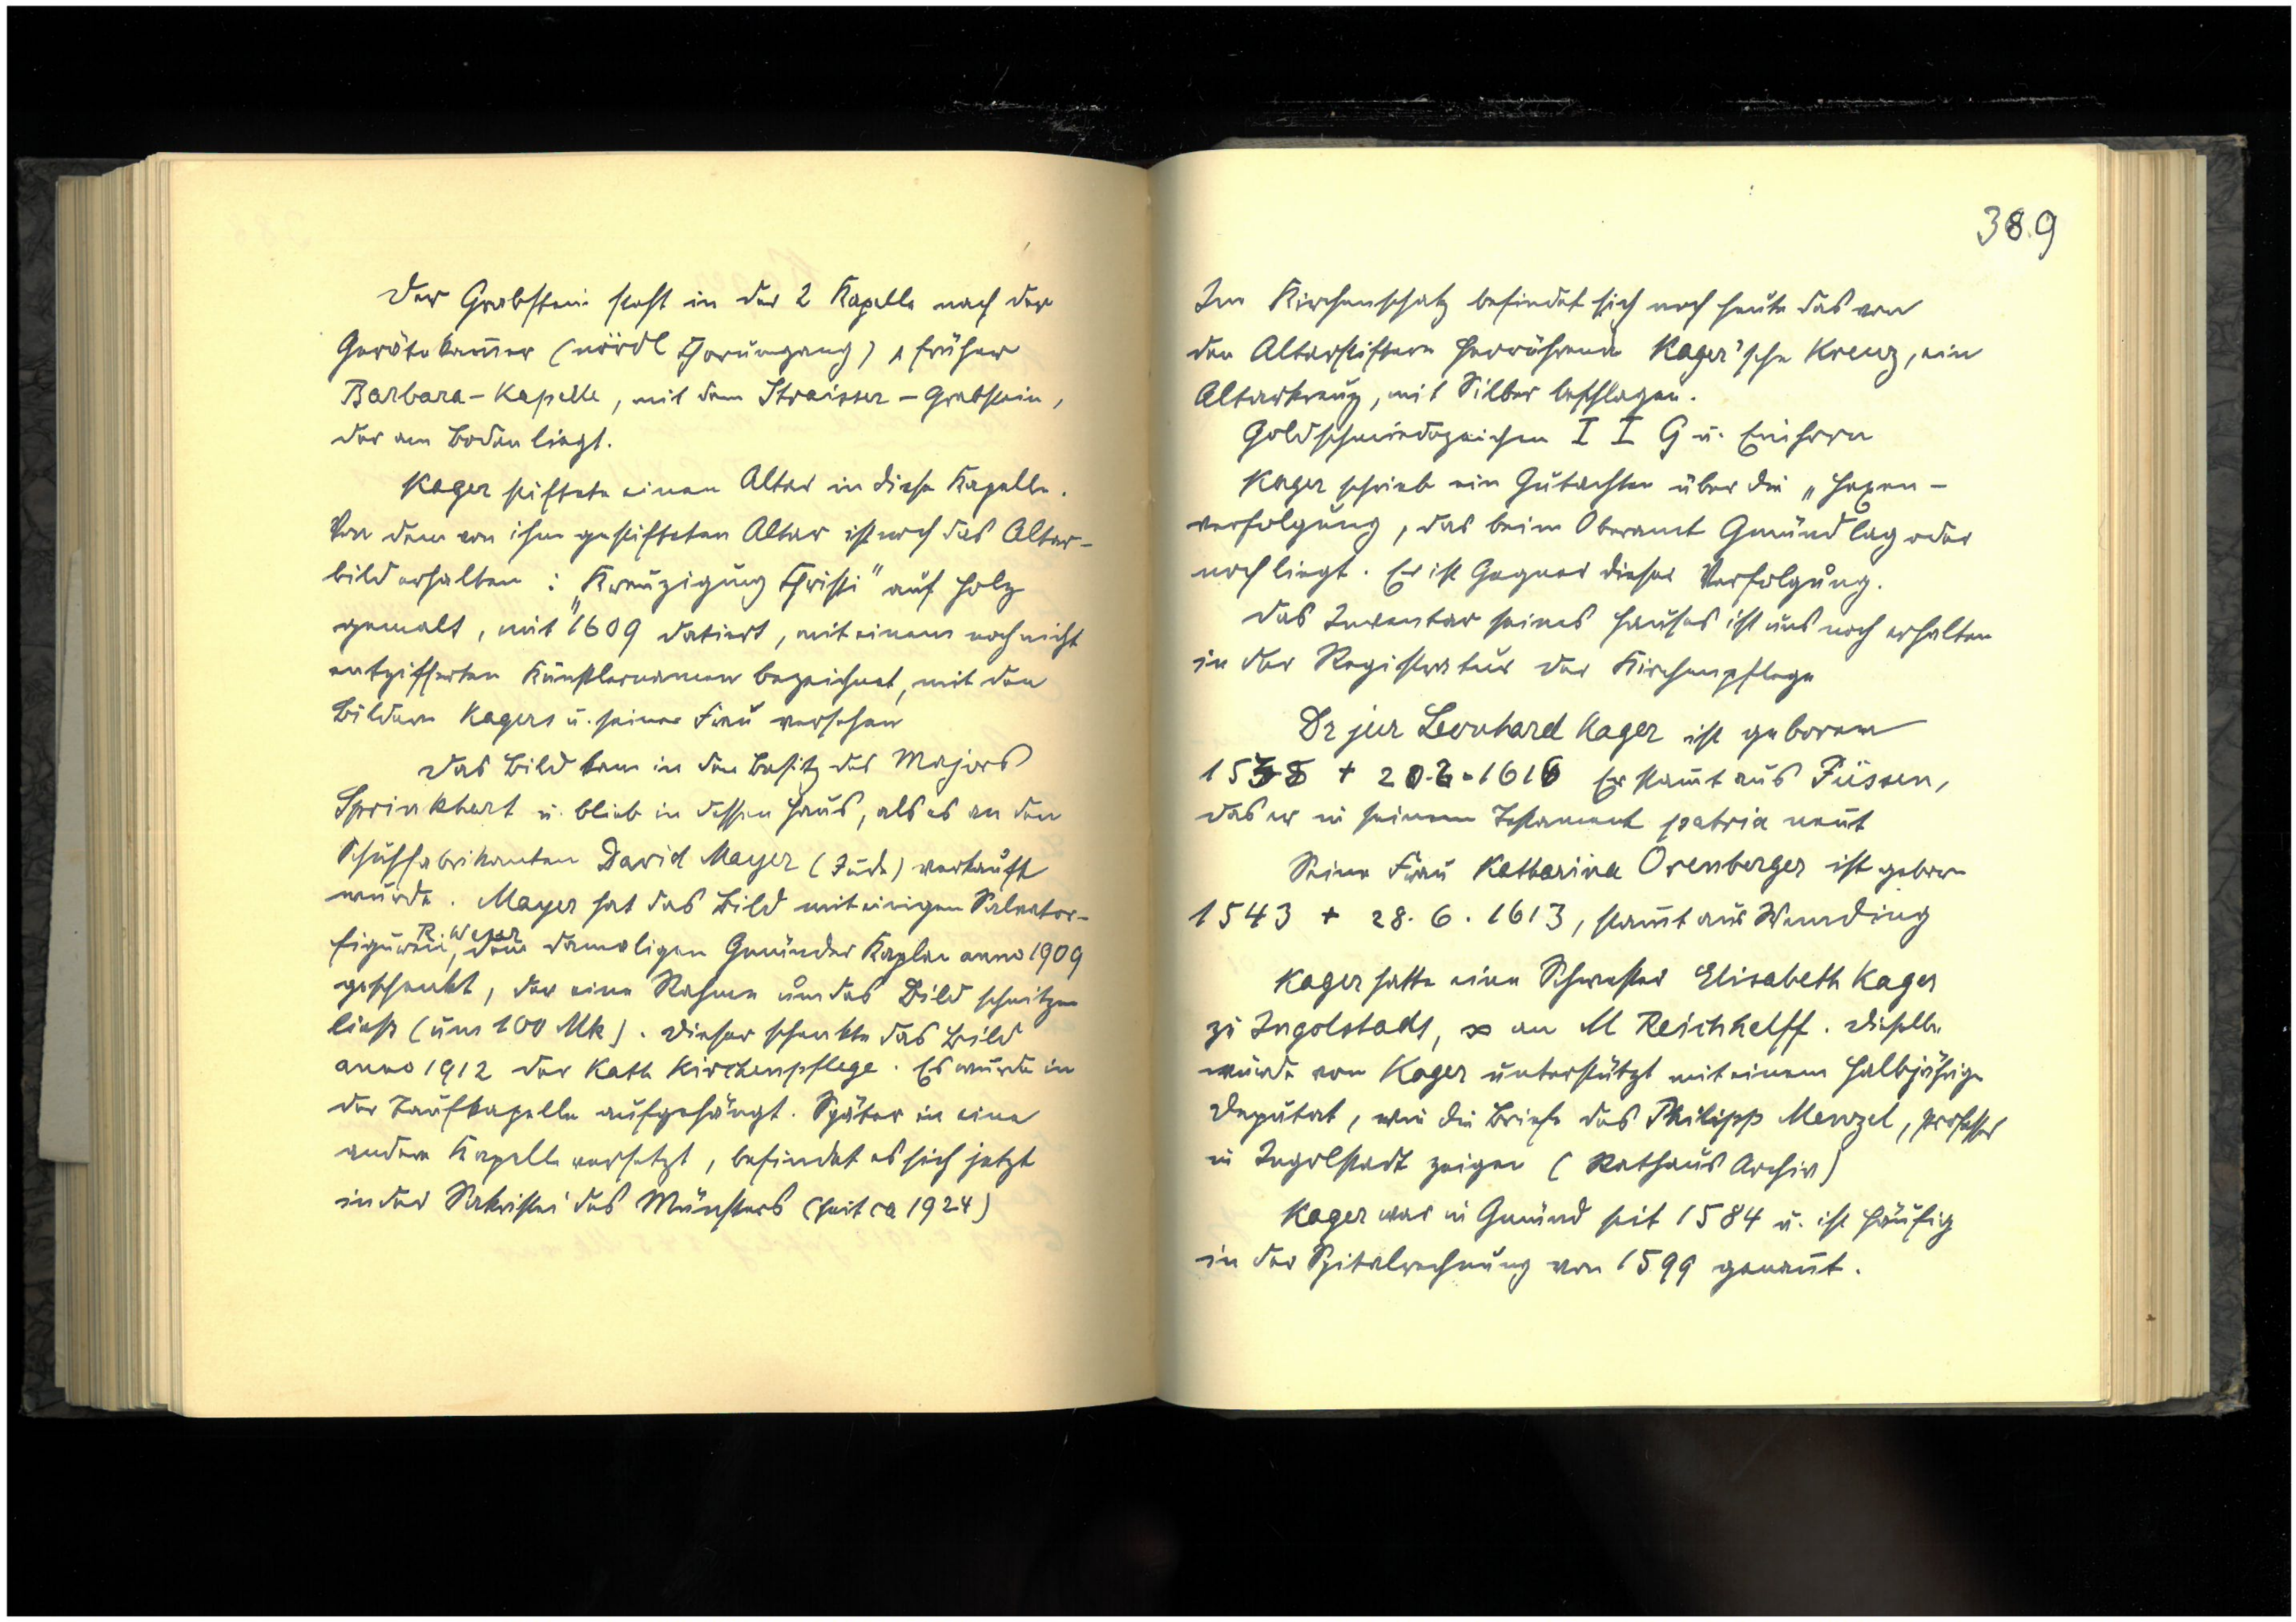 Der Grabstein steht in der 2 Kapelle nach der
Gerätekam̄er (nördl Chorumgang), früher
Barbara-Kapelle, mit dem Straisser-Grabstein,
der am Boden liegt.
Kager stiftete einen Altar in diese Kapelle.
Von dem von ihm gestifteten Altar ist noch das Altar-
bild erhalten: „Kreuzigung Christi" auf Holz
gemalt, mit 1609 datiert, mit einem noch nicht
entzifferten Künstlernamen bezeichnet, mit den
Bildern Kagers u. seiner Frau versehen
Das Bild kam in den Besitz des Majors
Sprinkhart u. blieb in dessen Haus, als es an den
Schuhfabrikanten David Mayer (Jude) verkauft
wurde. Mayer hat das Bild mit einigen Salvator-
R. Weser
figuren, dem damaligen Gmünder Kaplan anno 1909
geschenkt, der eine Rahme um das Bild schnitzen
liess (um 100 Mk). Dieser schenkte das Bild
anno 1912 der Kath Kirchenpflege. Es wurde in
der Taufkapelle aufgehängt. Später in eine
andere Kapelle versetzt, befindet es sich jetzt
in der Sakristei des Münsters (seit ca 1924)
389
Im Kirchenschatz befindet sich noch heute das von
den Altarstiftern herrührende Kager'sche Kreuz, ein
Altarkreuz, mit Silber beschlagen.
Goldschmiedezeichen I I G u. Einhorn
Kager schrieb ein Gutachten über die „Hexen-
verfolgung, das beim Oberamt Gmünd lag oder
noch liegt. Er ist Gegner dieser Verfolgung.
Das Inventar seines Hauses ist uns noch erhalten
in der Registratur der Kirchenpflege
Dr jur Leonhard Kager ist geboren
1538 + 20.2.1616 Er stam̄t aus Füssen,
das er in seinem Testament patria nen̄t
Seine Frau Katharina Orenberger ist geboren
1543 + 28.6.1613, stam̄t aus Wemding
Kager hatte eine Schwester Elisabeth Kager
zu Ingolstadt, ∞ an M Reichhelff. Dieselbe
wurde von Kager unterstützt mit einem halbjährige
Deputat, wie die Briefe des Philipp Menzel, Professor
in Ingolstadt zeigen (Rathaus Archiv)
Kager war in Gmünd seit 1584 u. ist häufig
in der Spitalrechnung von 1599 genan̄t.